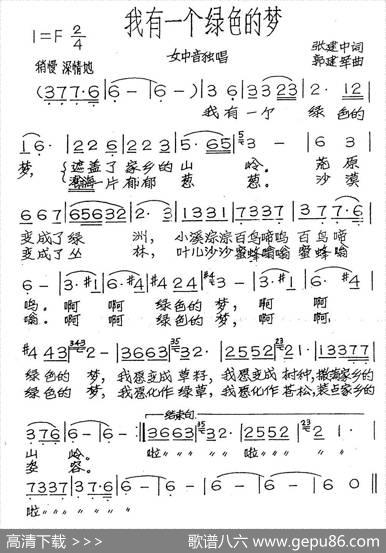 我有一个绿色的梦
1=F 2/4
女中音独唱
张建中词
郭建军曲
稍慢 深情地
(3 7 7·6 | 6 - | 6 -) | 3 6 | 3 3 23 | 2· 12 |
我有一个 绿色的
1 6· | 2 2 6 | 2 2 3 | 5· 65 | 3 - | 6 3 |
梦, 遮盖了家乡的山 岭。 荒原
一片郁郁 葱 葱。 沙漠
6 6 7 | 65632 | 2· 3 | 1331 | 7337 | 37 7·6 |
变成了绿 洲, 小溪淙淙百鸟啼鸣 百鸟啼
变成了丛 林, 叶儿沙沙蜜蜂嗡嗡 蜜蜂嗡
6 - | 3·#1 | 6·#4 | #4 24 | #4 3 - | 3·1 |
鸣。 啊 啊 绿色的 梦, 啊 啊
嗡。 啊 啊 绿色的 梦, 啊 啊
#4 43 | 343 2 - | 3663 | 35 32· | 2552 | 23 21· | 13377 |
绿色的 梦, 我愿变成 草籽, 我愿变成 树种, 撒满家乡的
绿色的 梦, 我愿化作 绿草, 我愿化作 苍松, 装点家乡的
3 7 6 | 6 - | 6 - :‖ 结束句 3663 | 35 32· | 2552 | 23 2 1· |
山 岭。 啦〃〃〃 啦〃 啦〃〃〃 啦〃
姿 容。
7337 | 37 7·6 | 6 - | 6 - | 6 - | 6 0 ‖
啦〃〃〃 啦〃〃〃
高清下载 >>>
歌谱八六 www.gepu86.com